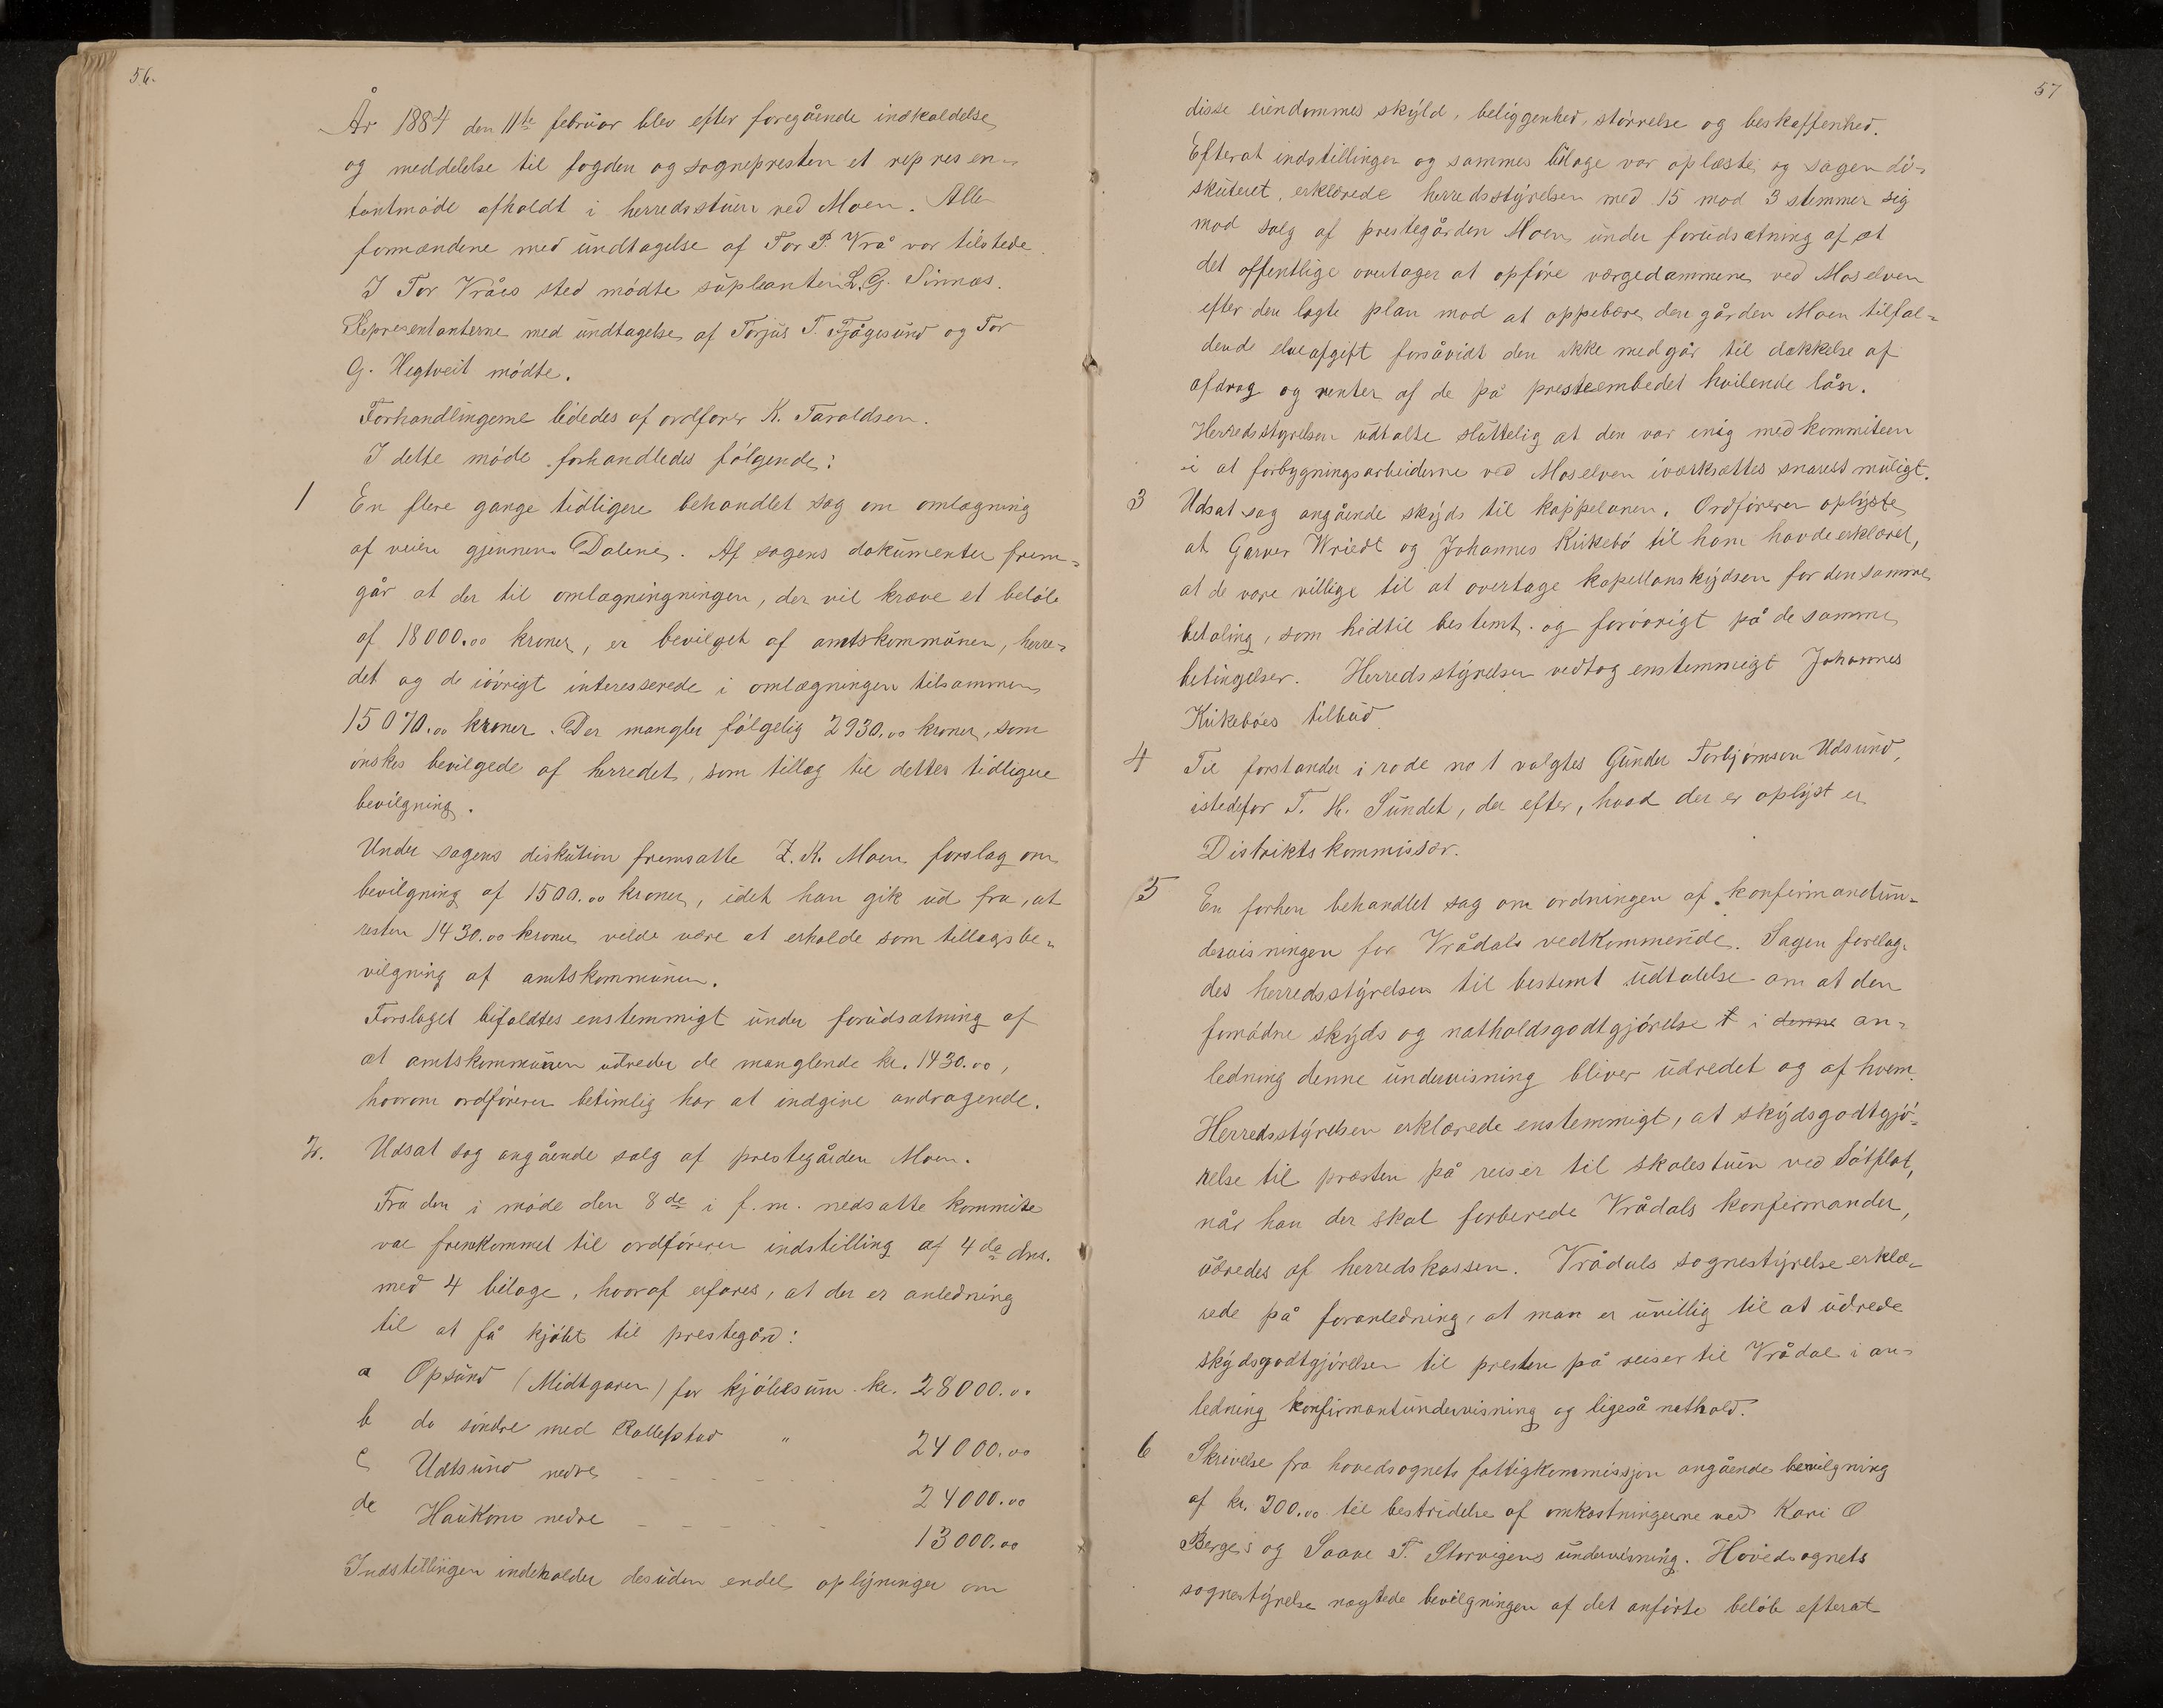 56.
År 1884 den 11te februar blev efter foregående indkaldelse
og meddelelse til fogden og sognepresten et represen-
tantmøde afholdt i herredsstuen ved Moen. Alle
formændene med undtagelse af Tor P. Vrå var tilstede.
I Tor Vråes sted mødte suplianten L. G. Sinnæs.
Representanterne med undtagelse af Torjus T. Fjågesund og Tor
G. Hegtveit mødte.
Forhandlingerne lededes af ordfører K. Taraldsen.
I dette møde forhandledes følgende:
1 En flere gange tidligere behandlet sag om omlægning
af veien gjennem Dalene. Af sagens dokumenter frem-
går at der til omlægningningen, der vil kræve et beløb
af 18000.00 kroner, er bevilget af amtskommunen, herre-
det og de iøvrigt interesserede i omlægningen tilsammen
15070.00 kroner. Der mangler følgelig 2930.00 kroner, som
ønskes bevilgede af herredet, som tillæg til dettes tidligere
bevilgning.
Under sagens diskution fremsatte Z. K. Moen forslag om
bevilgning af 1500.00 kroner, idet han gik ud fra, at
resten 1430.00 kroner vilde være at erholde som tillægsbe-
vilgning af amtskommunen.
Forslaget bifaldtes enstemmigt under forudsætning af
at amtskommunen udreder de manglende kr. 1430.00,
hvorom ordføreren betimlig har at indgive andragende.
2. Udsat sag angående salg af prestegården Moen.
Fra den i møde den 8de i f. m. nedsatte kommite
var fremkommet til ordføreren indstilling af 4de dns.
med 4 bilage, hvoraf erfares, at der er anledning
til at få kjøbt til prestegård:
a Opsund (Midtgaren) for kjøbesum kr. 28000.00
b do søndre med Rollefstad " 24000.00
c Udtsund nedre - - - - - 24000.00
de Haukom nedre - - - - 13000.00
Indstillingen indeholder desuden endel oplysninger om
57
disse eiendommes skyld, beliggenhed, størrelse og beskaffenhed.
Efterat indstillingen og sammes bilage var oplæste og sagen di-
skuteret, erklærede herredsstyrelsen med 15 mod 3 stemmer sig
mod salg af prestegården Moen under forudsætning af at
det offentlige overtager at opføre værgedammene ved Moselven
efter den lagte plan mod at oppebære den gården Moen tilfal-
dend elveafgift forsåvidt den ikke medgår til dækkelse af
afdrag og renter af de på presteembedet hvilende lån.
Herredsstyrelsen udtalte sluttelig at den var enig med kommiteen
i at forbygningsarbeiderne ved Moselven iværksættes snarest muligt.
3 Udsat sag angående skyds til kappelanen. Ordføreren oplyste
at Garver Wriedt og Johannes Kirkebø til ham havde erklæret,
at de vare villige til at overtage kapellanskydsen for den samme
betaling, som hidtil bestemt og forøvrigt på de samme
betingelser. Herredsstyrelsen vedtog enstemmigt Johannes
Kirkebøes tilbud
4 Til forstander i rode no 1 valgtes Gunder Torbjørnsen Udsund,
istedefor T. H. Sundet, der efter, hvad der er oplyst er
Distriktskommissær.
5 En forhen behandlet sag om ordningen af konfirmandun-
dervisningen for Vrådals vedkommende. Sagen forelag-
des herredsstyrelsen til bestemt udtalelse om at den
fornødne skyds og natholdsgodtgjørelse t i denne an-
ledning denne undervisning bliver udredet og af hvem.
Herredsstyrelsen erklærede enstemmigt, at skydsgodtgjø-
relse til præsten på reiser til skolestuen ved Sátflat,
når han der skal forberede Vrådals konfirmander,
udredes af herredskassen. Vrådals sognestyrelse erklæ-
rede på foranledning, at man er uvillig til at udrede
skydsgodtgjørelsen til presten på reiser til Vrådal i an-
ledning konfirmantundervisning og ligeså nathold.
6 Skrivelse fra hovedsognets fattigkommissjon angående bevilgning
af kr. 200.00 til bestridelse af omkostningerne ved Kari O
Berge's og Saave T. Storvigens undervisning. Hovedsognets
sognestyrelse nægtede bevilgningen af det anførte beløb efterat